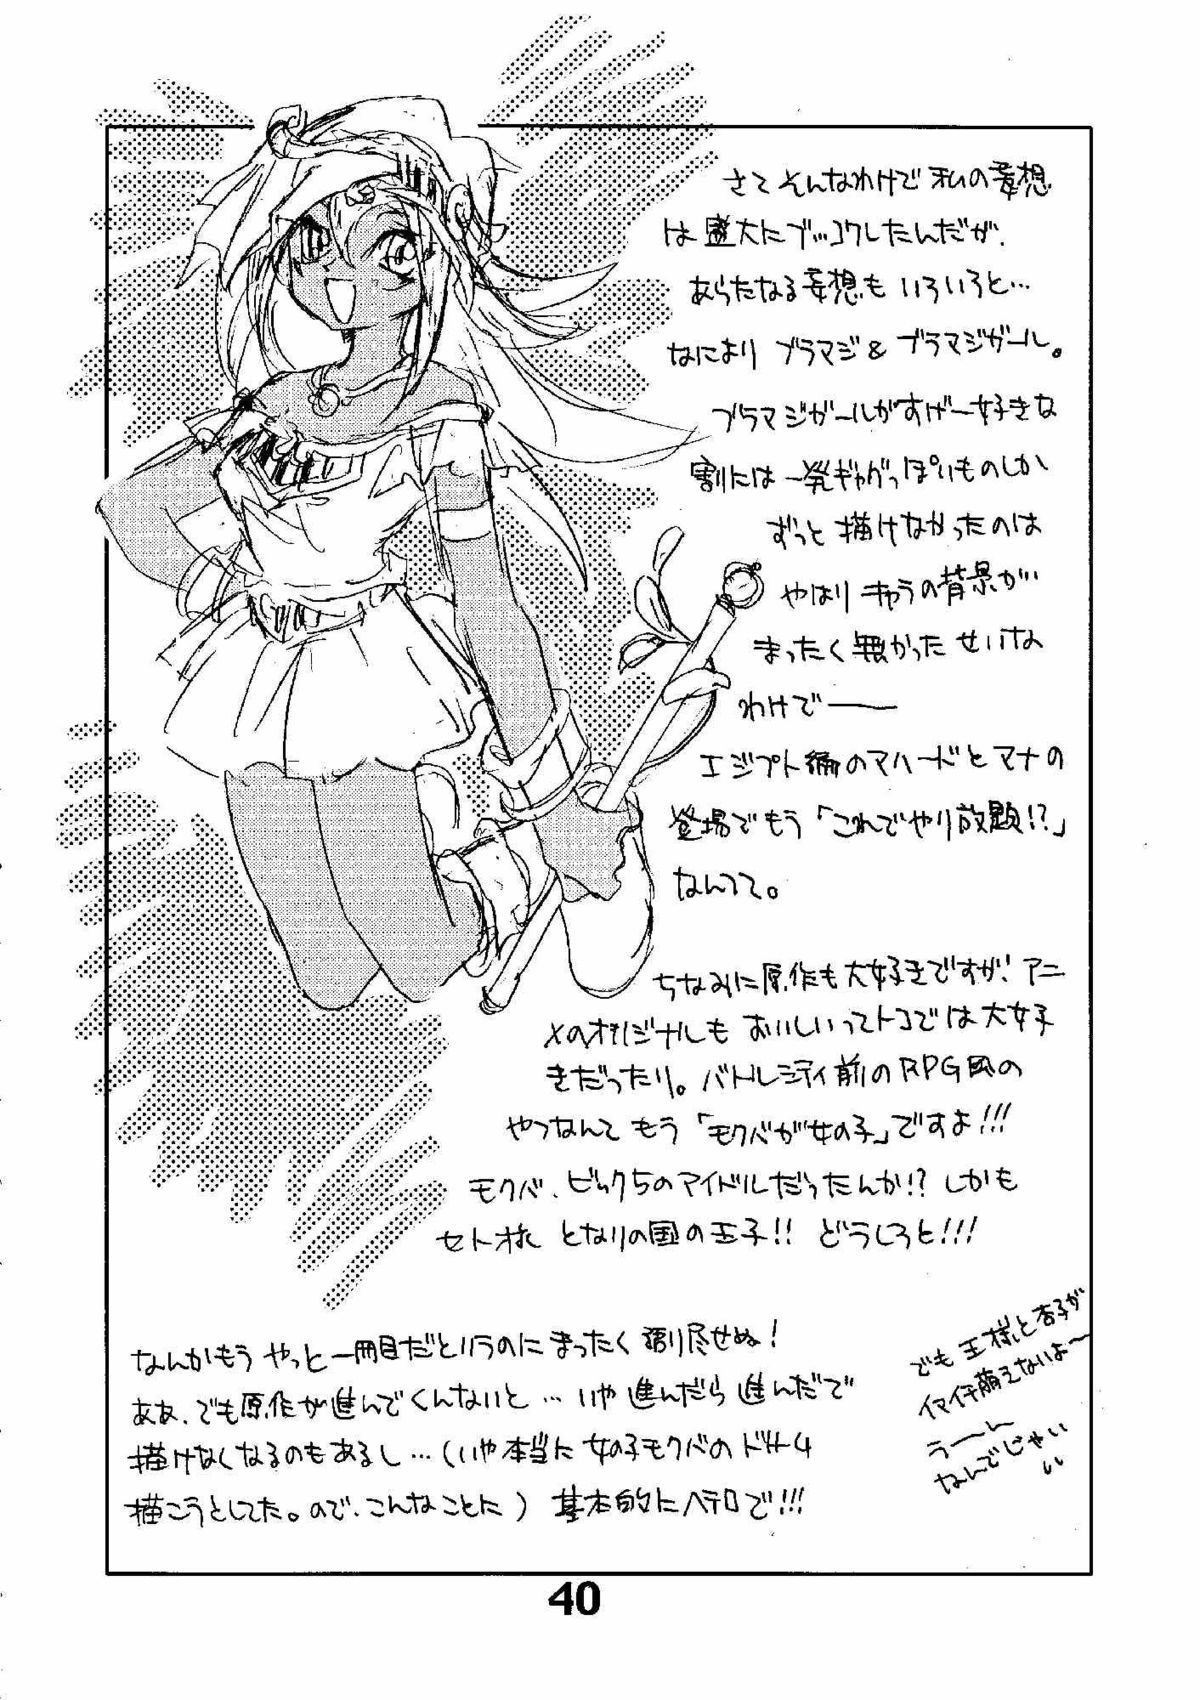 さて そんなわけで 私の妄想
は盛大にブッコワしたんだが、
あらたなる妄想も いろいろと…
なにより ブラマジ & ブラマジガール。
ブラマジガールがすげー好きな
割には一発ギャグっぽいものしか
ずっと 描けなかったのは
やはり キャラの背景が
まったく 無かった せいな
わけで——
エジプト編のマハードとマナの
登場でもう「これでやり放題!?」
なんてて。
ちなみに原作も大好きですが、アニ
メのオリジナルも おいしいってトコでは大好
きだったり。バトルシティ前のRPG風の
やつなんて もう 「モクバが女の子」ですよ!!!
モクバ、ビック5のアイドルだったんか!? しかも
セト様 となりの国の王子!! どうしろと!!!
なんかもう やっと 一冊目だというのに まったく 語り尽せぬ!
ああ、でも原作が進んでくんないと… いや 進んだら 進んだで
描けなくなるのもあるし…(いや本当に 女の子モクバの
描こうとしてた。ので、こんなことに) 基本的にヘテロで!!!
でも 王様と杏子が
イマイチ萌えないよ〜
うーん
なんでじゃい
40